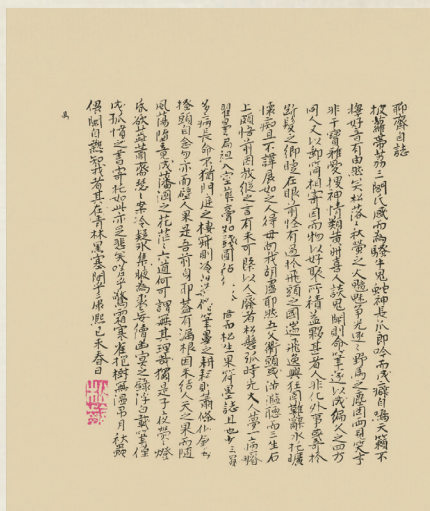 聊齋自誌
披蘿帶荔三閭氏感而為騷牛鬼蛇神長爪郎吟而成癖自鳴天籟不
擇好音有由然矣松落落秋螢之火魑魅爭光逐逐野馬之塵罔兩見笑才
非干寶雅愛搜神情類黃州喜人談鬼聞則命筆遂以成編久之四方
同人又以郵筒相寄因而物以好聚所積益夥甚者人非化外事或奇於
斷髮之鄉睫在眼前怪有過於飛頭之國遄飛逸興狂固難辭永托曠
懷癡且不諱展如之人得毋向我胡盧耶然五父衢頭或涉濫聽而三生石
上頗悟前因放縱之言有未可概以人廢者松懸弧時先大人夢一病瘠
瞿曇偏袒入室藥膏如錢圓粘 寤而松生果符墨誌且也少羸
多病長命不猶門庭之淒寂則冷淡如僧筆墨之耕耘則蕭條似缽每
搔頭自念勿亦面壁人果是吾前身耶蓋有漏根因未結人天之果而隨
風蕩墮竟成藩溷之花茫茫六道何可謂無其理哉獨是子夜熒熒燈
昏欲蕊蕭齋瑟瑟案冷疑冰集腋為裘妄續幽冥之錄浮白載筆僅
成孤憤之書寄托如此亦足悲矣嗟乎驚霜寒雀抱樹無溫吊月秋蟲
偎闌自熱知我者其在青林黑塞間乎康熙己未春日